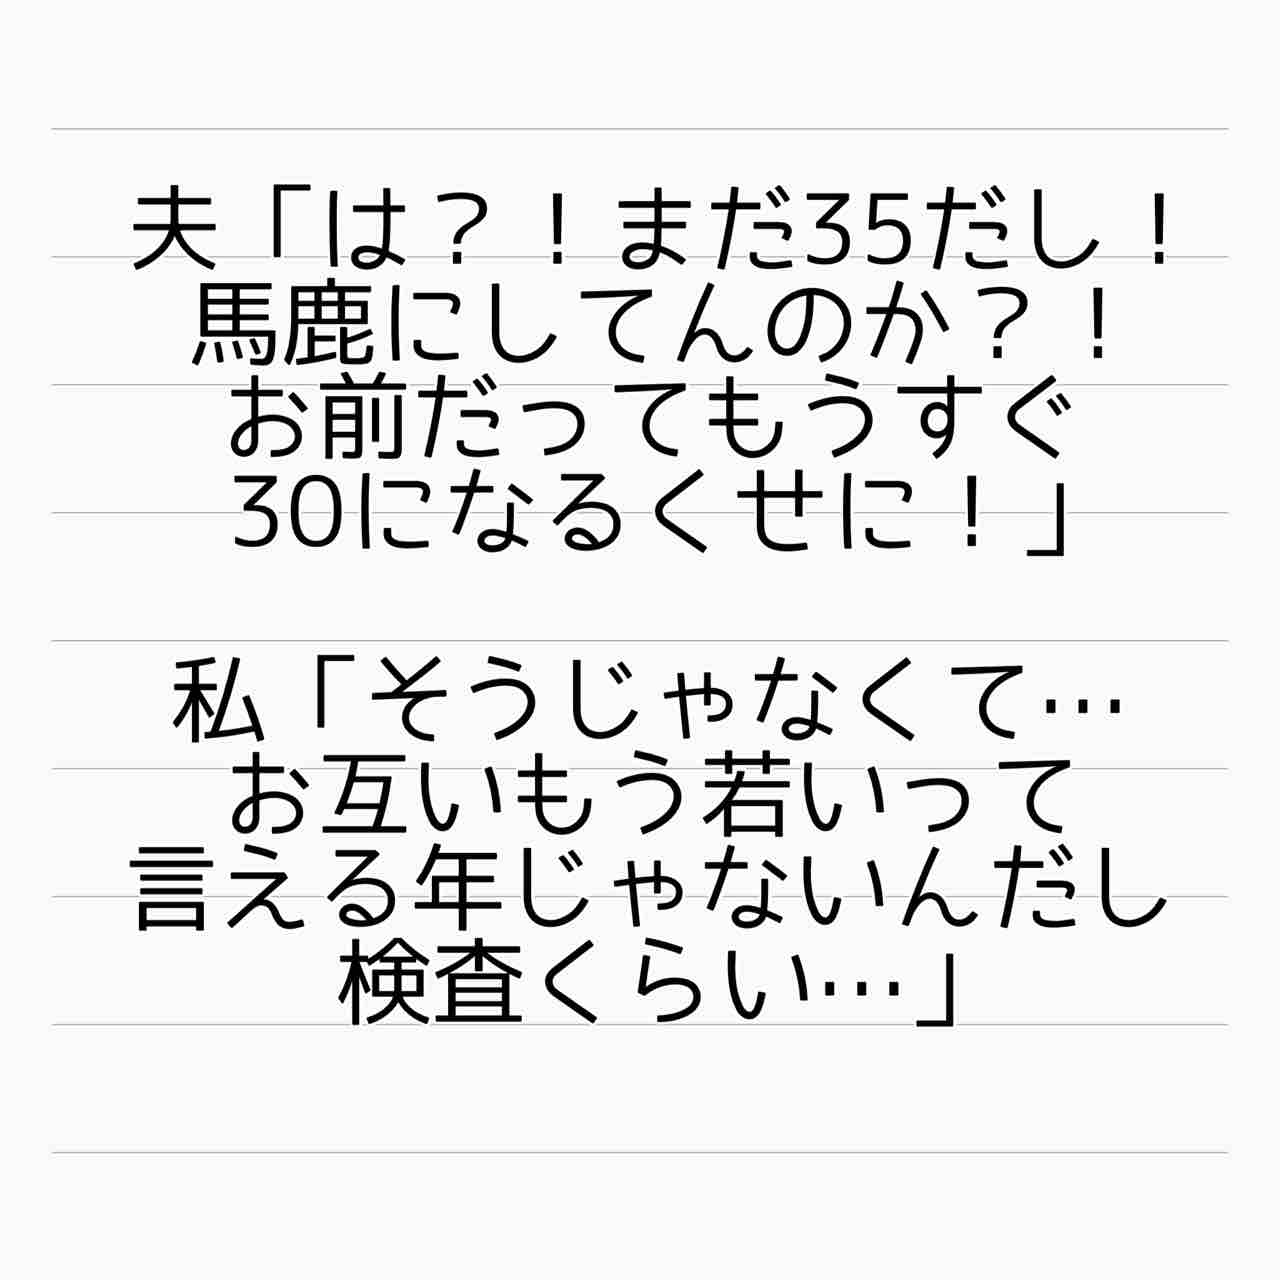 夫「は？！まだ35だし！
馬鹿にしてんのか？！
お前だってもうすぐ
30になるくせに！」
私「そうじゃなくて…
お互いもう若いって
言える年じゃないんだし
検査くらい…」